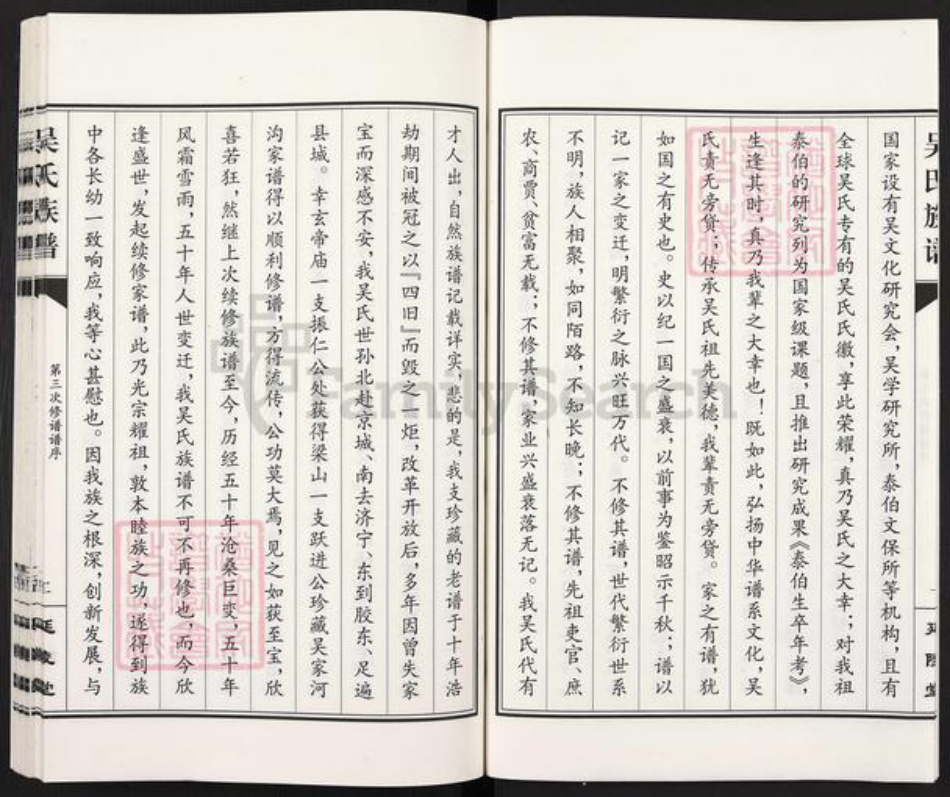 国家设有吴文化研究会，吴学研究所，泰伯文保所等机构，且有
全球吴氏专有的吴氏氏徽，享此荣耀，真乃吴氏之大幸；对我祖
泰伯的研究列为国家级课题，且推出研究成果《泰伯生卒年考》，
生逢其时，真乃我辈之大幸也！既如此，弘扬中华谱系文化，吴
氏责无旁贷；传承吴氏祖先美德，我辈责无旁贷。家之有谱，犹
如国之有史也。史以纪一国之盛衰，以前事为鉴昭示千秋；谱以
记一家之变迁，明繁衍之脉兴旺万代。不修其谱，世代繁衍世系
不明，族人相聚，如同陌路，不知长晚；不修其谱，先祖吏官、庶
农、商贾、贫富无载；不修其谱，家业兴盛衰落无记。我吴氏代有
才人出，自然族谱记载详实，悲的是，我支珍藏的老谱于十年浩
劫期间被冠之以『四旧』而毁之一炬，改革开放后，多年因曾失家
宝而深感不安，我吴氏世孙北赴京城、南去济宁、东到胶东、足遍
县城。幸玄帝庙一支振仁公处获得梁山一支跃进公珍藏吴家河
沟家谱得以顺利修谱，方得流传，公功莫大焉，见之如获至宝，欣
喜若狂，然继上次续修族谱至今，历经五十年沧桑巨变，五十年
风霜雪雨，五十年人世变迁，我吴氏族谱不可不再修也，而今欣
逢盛世，发起续修家谱，此乃光宗耀祖，敦本睦族之功，遂得到族
中各长幼一致响应，我等心甚慰也。因我族之根深，创新发展，与
吴氏族谱
第三次修谱谱序
FamilySearch